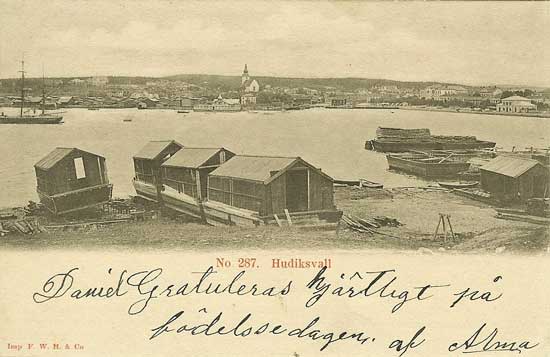 No 287. Hudiksvall
Daniel Gratuleras hjärtligt på
födelsedagen. af Alma
Imp F. W. H. & Co